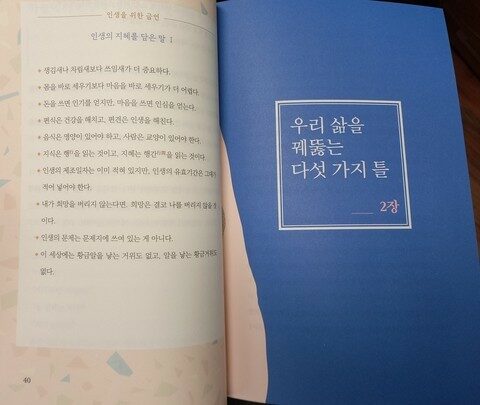 인생을 위한 금언
인생의 지혜를 담은 말 1
생김새나 차림새보다 쓰임새가 더 중요하다.
몸을 바로 세우기보다 마음을 바로 세우기가 더 어렵다.
돈을 쓰면 인기를 얻지만, 마음을 쓰면 인심을 얻는다.
편식은 건강을 해치고, 편견은 인생을 해친다.
음식은 영양이 있어야 하고, 사람은 교양이 있어야 한다.
지식은 행行을 읽는 것이고, 지혜는 행간行間을 읽는 것이다.
인생의 제조일자는 이미 적혀 있지만, 인생의 유효기간은 그대가
적어 넣어야 한다.
내가 희망을 버리지 않는다면, 희망은 결코 나를 버리지 않을 것
이다.
인생의 문제는 문제지에 쓰여 있는 게 아니다.
이 세상에는 황금알을 낳는 거위도 없고, 알을 낳는 황금거위도
없다.
40
우리 삶을
꿰뚫는
다섯 가지 틀
2장